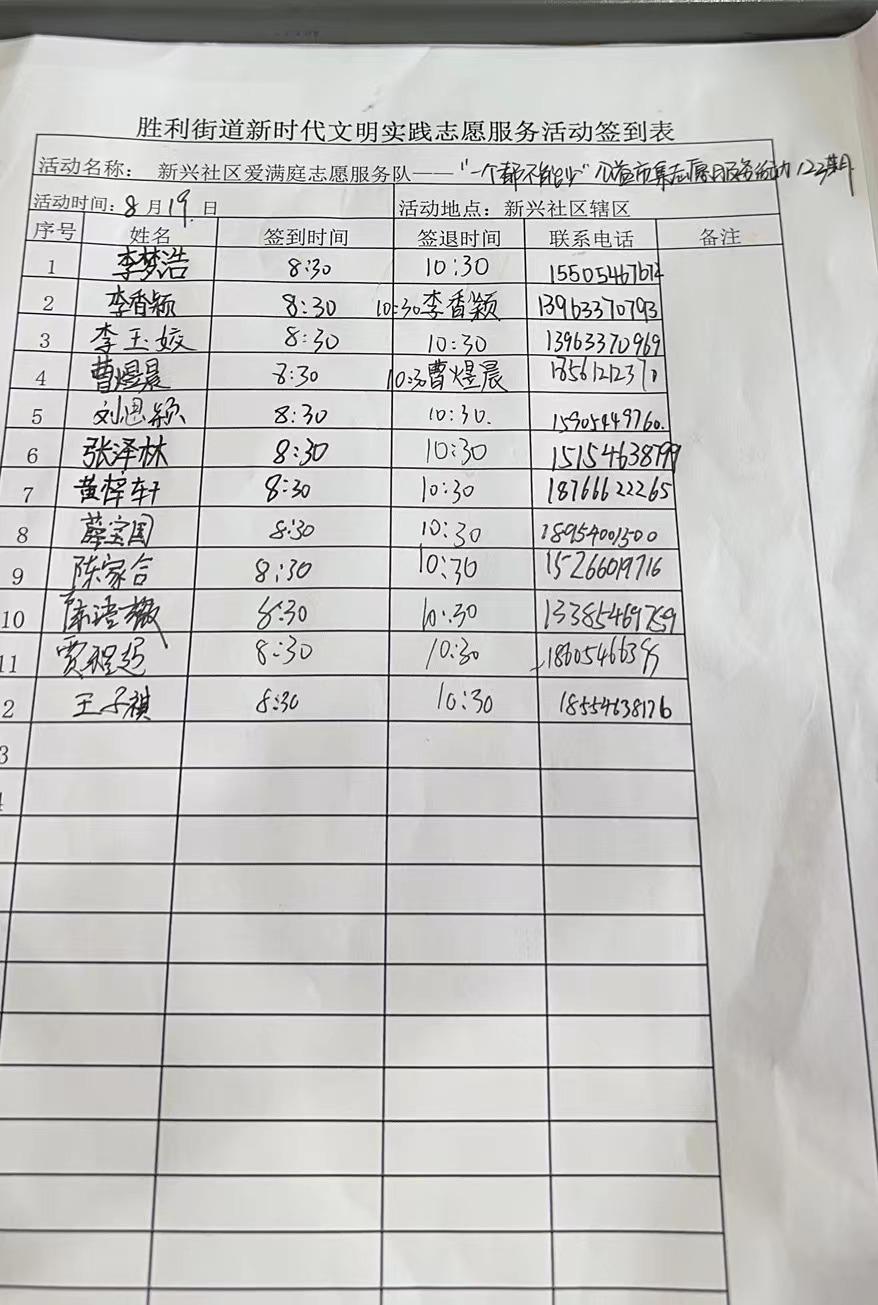 胜利街道新时代文明实践志愿服务活动签到表
活动名称： 新兴社区爱满庭志愿服务队——“一个都不能少”公益市集志愿服务活动122期
活动时间：8月19日 活动地点：新兴社区辖区
序号 姓名 签到时间 签退时间 联系电话 备注
1 李梦浩 8:30 10:30
2 李香颖 8:30 10:30李香颖 13963370793
3 李玉姣 8:30 10:30 13963370969
4 曹煜晨 8:30 10:30曹煜晨
5 刘思颖 8:30 10:30. 15905449760.
6 张泽林 8:30 10:30 15154638799
7 黄梓轩 8:30 10:30 18766622265
8 薛宝国 8:30 10:30 18954001500
9 陈家合 8:30 10:30 15266019716
10 8:30 10:30 13385469759
11 贾程超 8:30 10:30
2 王子祺 8:30 10:30 18554638176
3